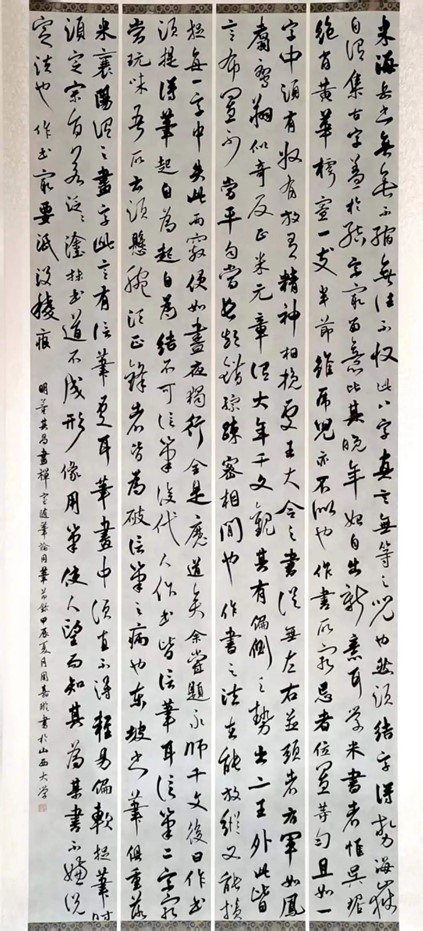 米海岳書無垂不縮無往不收此八字真言無等等之咒也然須結字得勢海嶽
自謂集古字蓋於結字最留意比其晚年始自出新意耳學米書者惟吳琚
絕肖黃華樗寮一支半節雖虎兒亦不似也作書所最忌者位置等勻且如一
字中須有收有放有精神相挽處王大令之書從無左右並頭者右軍如鳳
翥鸞翔似奇反正米元章謂大年千文觀其有偏側之勢出二王外此皆
言布置不當平勻當長短錯綜疎密相間也作書之法在能放縱又能攢
捉每一字中失此兩竅便如晝夜獨行全是魔道矣余嘗題永師千文後曰作書
須提得筆起自為起自為結不可信筆後代人作書皆信筆耳信筆二字最
當玩味吾所云須懸腕須正鋒者皆為破信筆之病也東坡書筆俱重落
米襄陽謂之畫字此言有信筆處耳筆畫中須直不得輕易偏軟捉筆時
須定宗旨若泛泛塗抹書道不成形像用筆使人望而知其為某書不嫌說
定法也作書最要泯沒稜痕
明董其昌畫禪室隨筆論用筆節錄甲辰夏月周嘉書於山西大學